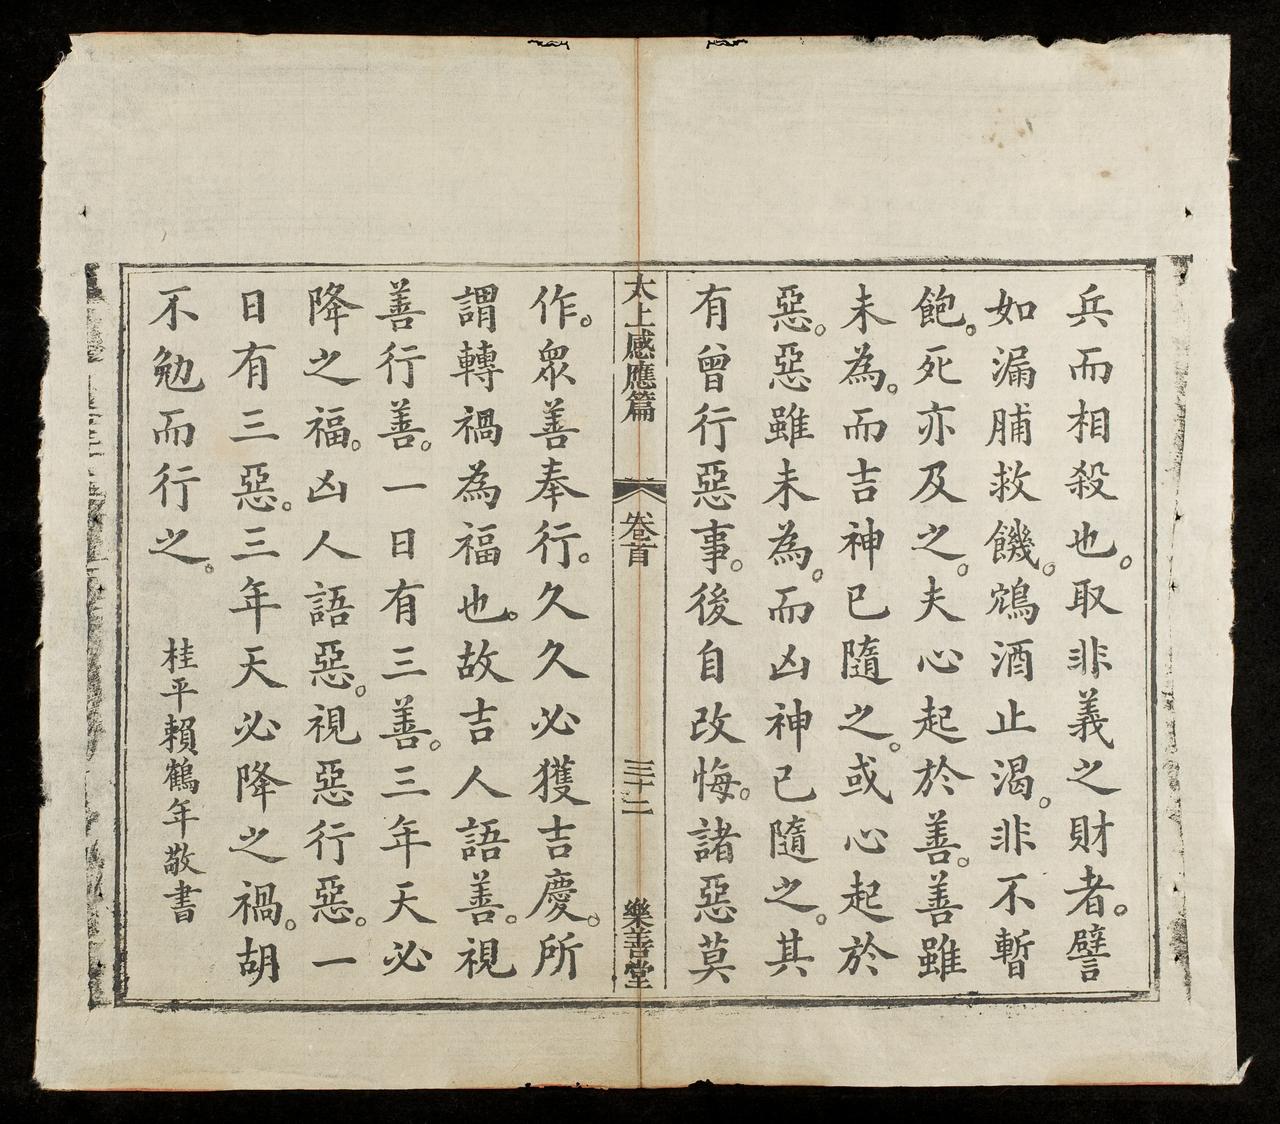 兵而相殺也。取非義之財者。譬
如漏脯救饑。鴆酒止渴。非不暫
飽。死亦及之。夫心起於善。善雖
未為。而吉神已隨之。或心起於
惡。惡雖未為。而凶神已隨之。其
有曾行惡事。後自改悔。諸惡莫
太上感應篇 卷首 三十二 樂善堂
作。眾善奉行。久久必獲吉慶。所
謂轉禍為福也。故吉人語善。視
善行善。一日有三善。三年天必
降之福。凶人語惡。視惡行惡。一
日有三惡。三年天必降之禍。胡
不勉而行之。
桂平賴鶴年敬書